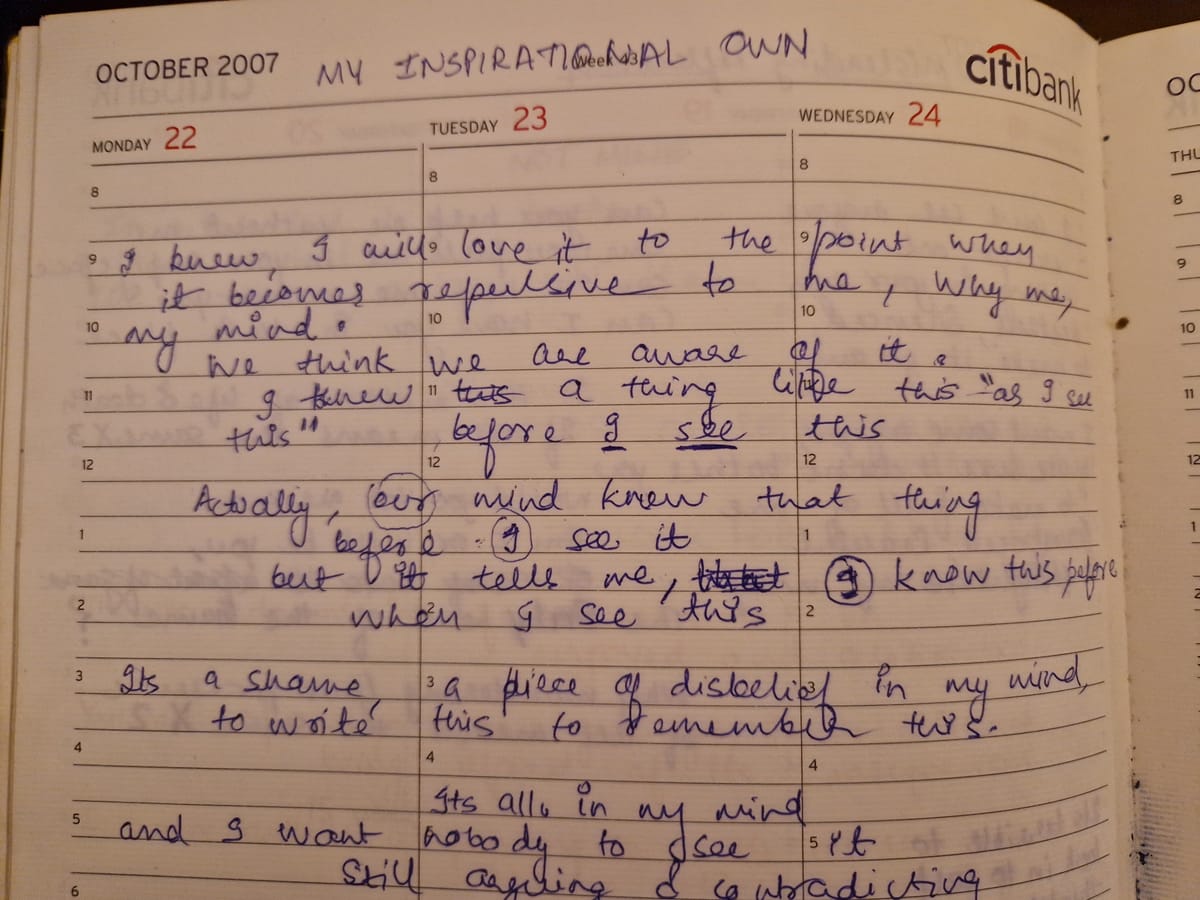 OCTOBER 2007 MY INSPIRATIONAL OWN citibank
Week 43
MONDAY 22 TUESDAY 23 WEDNESDAY 24
8 8 8
9 I knew, I will 9 love it to the 9 point when
it becomes repulsive to me, why me,
10 my mind. 10 10
We think we are aware of it.
11 I knew 11 this a thing like this "as I see
this" before I see this
12 12 12
Actually, our mind knew that thing
1 before I see it 1
but it tells me, I know this before
2 when I see this 2
3 Its a shame, 3 a piece of disbelief in my mind,
to write this to remember this.
4 4 4
Its all in my mind
5 and I want nobody to see 5 it
6 Still arguing & contradicting
OC
THU
8
9
10
11
12
1
2